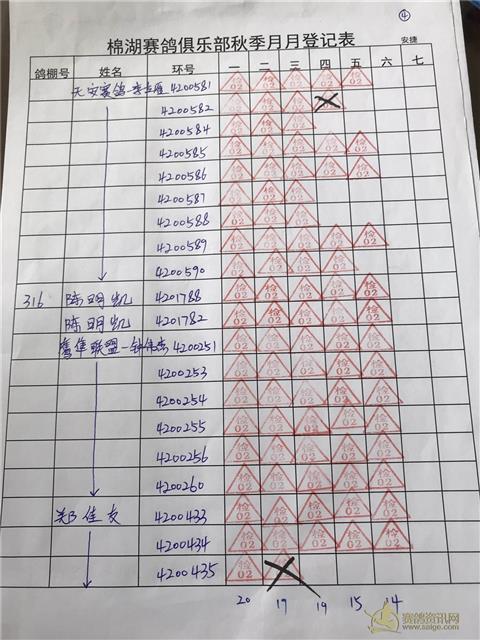 ④
棉湖赛鸽俱乐部秋季月月登记表
安捷
鸽棚号 姓名 环号 一 二 三 四 五 六 七
天安赛鸽-李 4200581 检02 检02 检02 检02 检02
4200582 检02 检02 检02
4200584 检02 检02 检02
4200585 检02 检02 检02 检02 检02
4200586 检02 检02 检02 检02 检02
4200587 检02 检02 检02
4200588 检02 检02 检02
4200589 检02 检02 检02 检02 检02
4200590 检02 检02 检02 检02
316 陈明凯 4201788 检02 检02 检02 检02 检02
陈明凯 4201782 检02 检02 检02 检02 检02
鹰隼联盟-钟伟 4200251 检02 检02 检02 检02 检02
4200253 检02 检02 检02 检02 检02
4200254 检02 检02 检02 检02 检02
4200255 检02 检02 检02 检02 检02
4200256 检02 检02 检02 检02 检02
4200260 检02 检02 检02 检02 检02
郑佳友 4200433 检02 检02 检02 检02 检02
4200434 检02 检02 检02 检02 检02
4200435 检02
20 19 19 15 14
赛鸽资讯网
www.saige.com